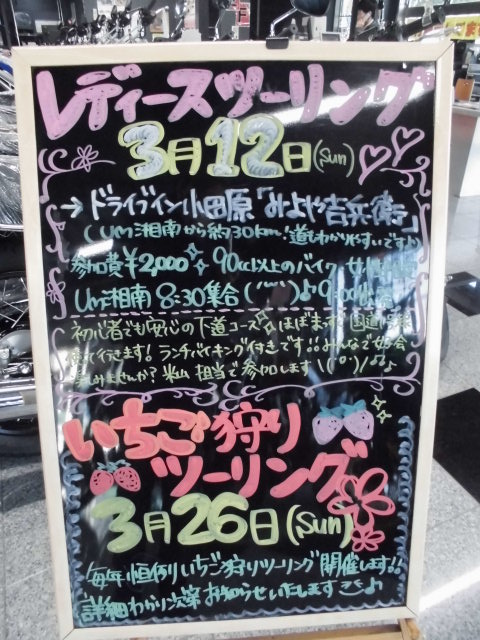 レディースツーリング
3月12日(sun)
→ ドライブイン小田原「みよや吉兵衛」
(Um湘南から約30km!道もわかりやすいです♪)
参加費¥2,000 90cc以上のバイク 女性
Um湘南 8:30集合 ♪ 9:00
初心者でも安心の下道コース はぼまっすぐ 国道
行きます! ランチバイキング付きです!! みんなで女子会
しみませんか? 米山 担当で参加します\(^o^)/♪♪
いちご狩り
ツーリング
3月26日(sun)
毎年恒例いちご狩りツーリング開催します!!
詳細わかり次第お知らせいたします♪